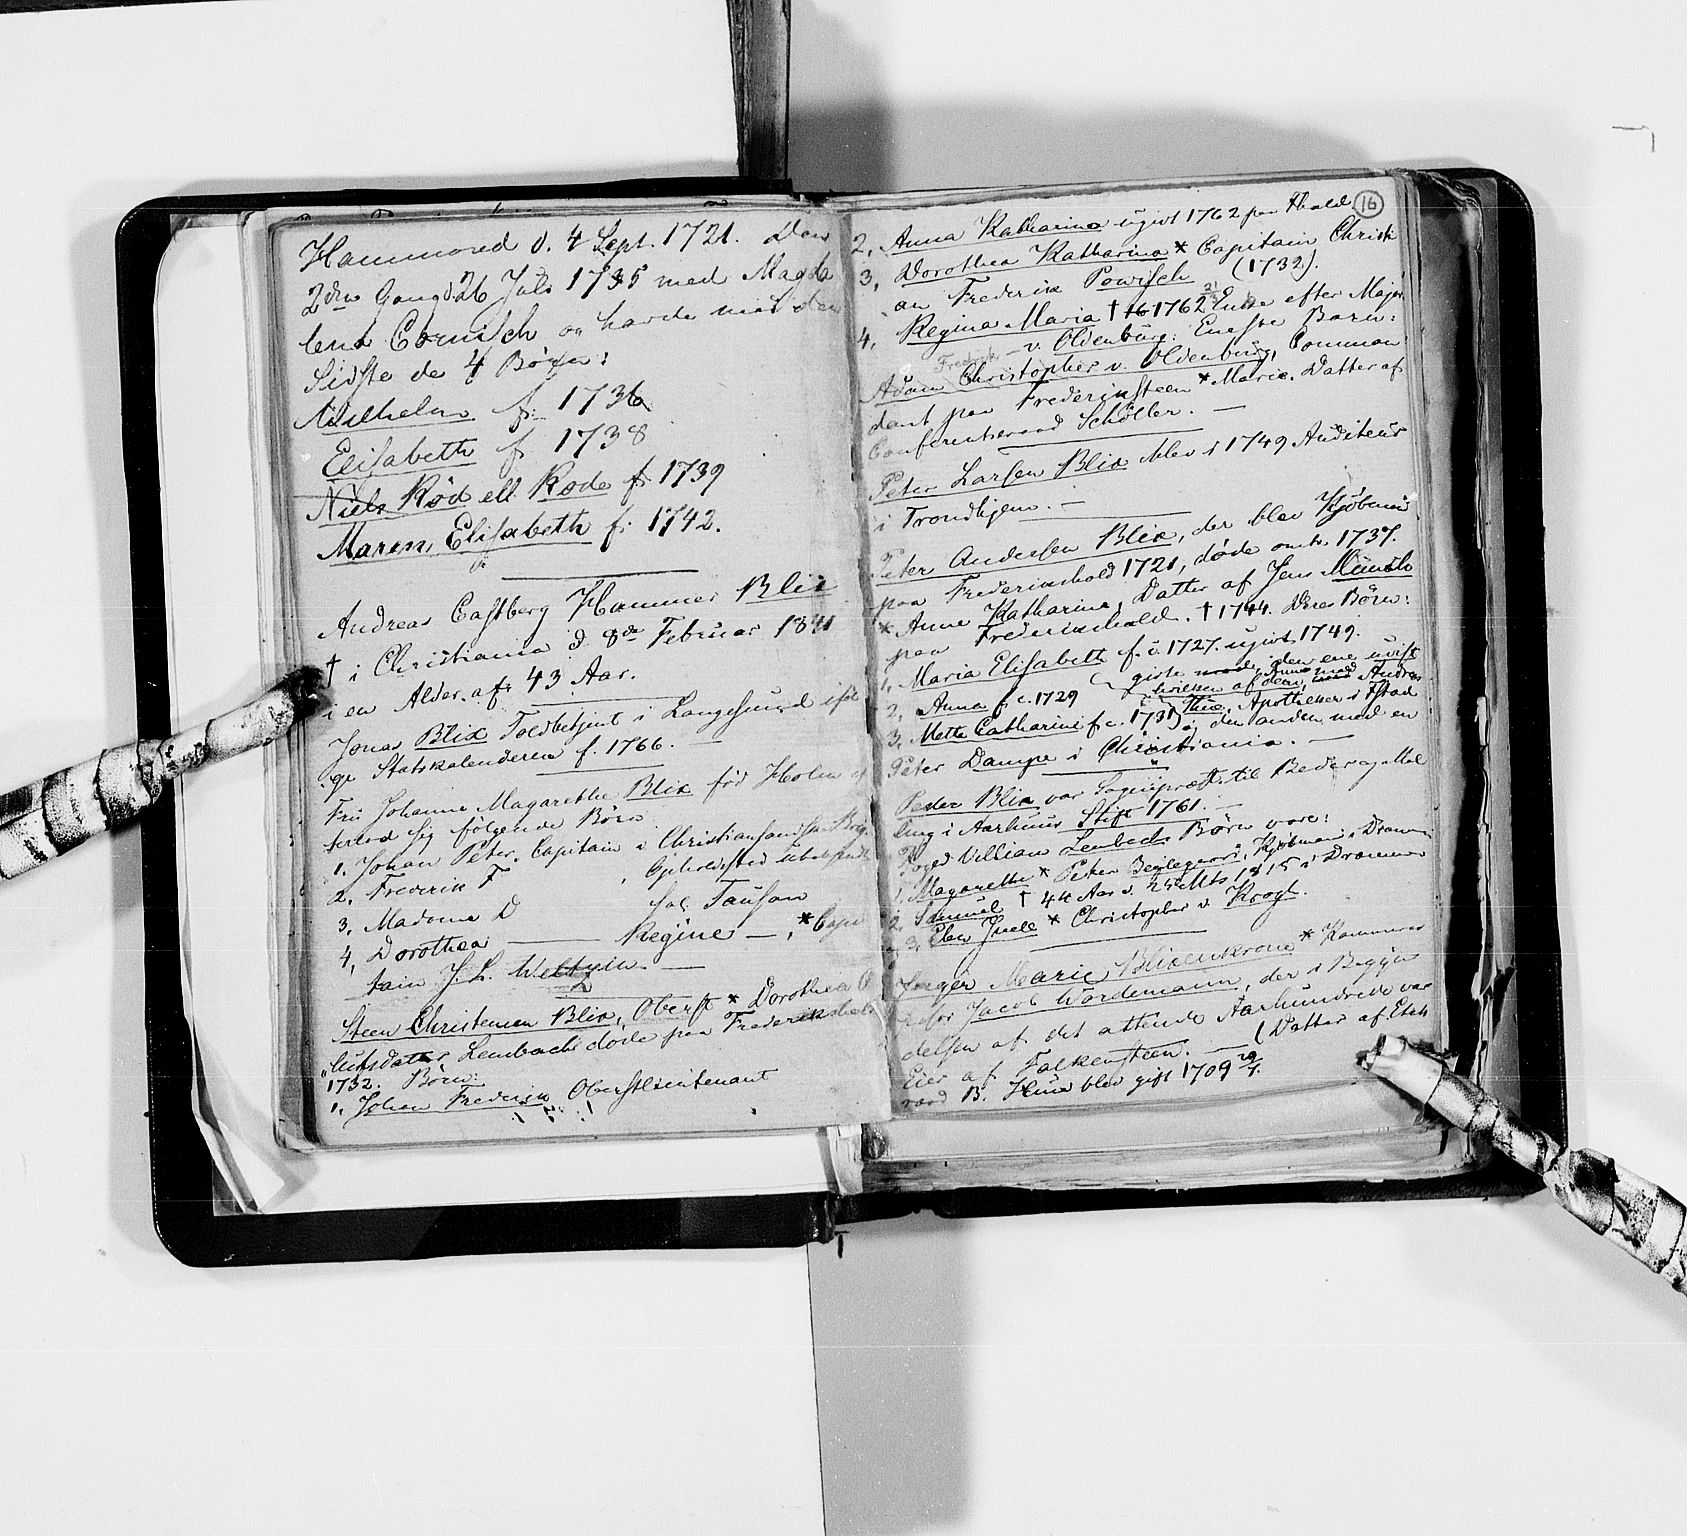 Hammered d. 4 Sept. 1721. Den
2den Gang d. 26 Juli 1735 med Magda
lena Cornisch og havde med den
Sidste de 4 Börn:
Wilhelm f. 1736
Elisabeth f. 1738
Niels Röd ell. Rode f. 1739
Maren Elisabeth f. 1742.
Andreas Castberg Hammer Blix
† i Christiania d. 8de Februar 1841
i en Alder af 43 Aar.
Jonas Blix Toldbetjent i Langesund iföl
ge Statskalenderen f. 1766. —
Fru Johanne Magarethe Blix född Holm
terlod sig følgende Börn
1. Johan Peter, Capitain i Christiansandske
2. Frederik F Opholdssted ubekjendt
3. Madame D sal. Tausan
4, Dorothea — Regine —, * Capi
tain J. L. —
Steen Christensen Blix, Oberst * Dorothea
Lembach döde paa Frederikshald
1732. Börn:
1. Johan Frederik Oberstlieutenant
16
2, Anna Katharina ugivt 1762 paa Fhald
3, Dorothea Katharina * Capitain Christi
an Frederik Powisch (1732).
4, Regina Maria † 1762 Enke efter Major
Fredrik — v. Oldenburg: Eneste Barn:
Adam Christopher v. Oldenburg, Comman
dant paa Frederiksteen * Marie. Datter af
Conferentsraad Schöller. —
Peter Larsen Blix blev i 1749 Auditeur
i Trondhjem. —
Peter Andersen Blix, der blev Kjöbmand
paa Frederikshald 1721, döde omtr. 1737.
* Anne Katharina, Datter af Jens Munch
paa Frederikshald. † 1744. Deres Börn:
1, Maria Elisabeth f. c. 1727. ugivt 1749.
2, Anna f. c. 1729
3, Mette Catharine f. c. 1731
gifte den ene uvist
hvilken af dem, Anne med Andreas
Thue, Apotheker i Fstad
den anden med en
Peter Dampe i Christiania. —
Peder Blix var Sognepræst til Beder og Mal
ling i Aarhuus Stift 1761. —
Foged Villiam Lembachs Börn vare:
1, Magarethe * Peter Beylegaard, Kjöbmand i Dram
2, Samuel † 44 Aar d. 25 Mts 1815 i Drammen
3, Elen Juell * Christopher v. Krogh.
Marie Blixenkrone * Kammer
Jacob Wördemann, der i Begyn
delsen af det attende Aarhundrede var
Eier af Falkensteen. — (Datter af Etats
raad B. blev gift 1709 29/7.